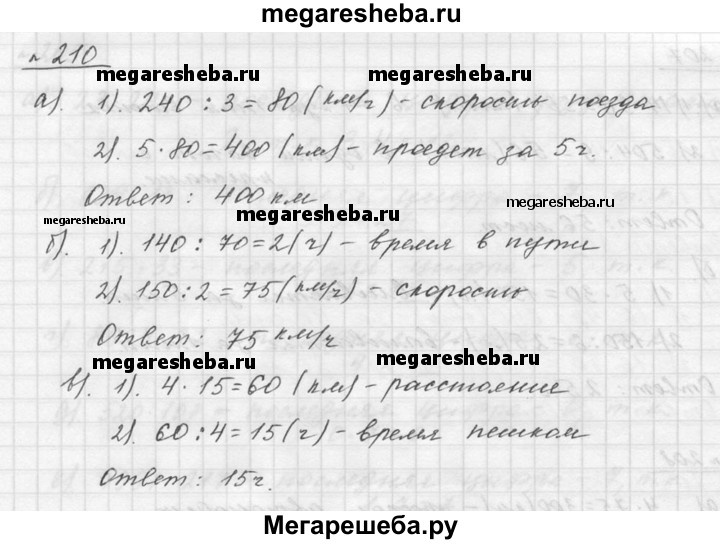 megaresheba.ru
№ 210
megaresheba.ru megaresheba.ru
а). 1). 240 : 3 = 80 (км/ч) - скорость поезда
2). 5 · 80 = 400 (км) - проедет за 5 ч.
Ответ : 400 км
megaresheba.ru megaresheba.ru megaresheba.ru
б). 1). 140 : 70 = 2 (ч) - время в пути
2). 150 : 2 = 75 (км/ч) - скорость
Ответ : 75 км/ч
megaresheba.ru megaresheba.ru
в). 1). 4 · 15 = 60 (км) - расстояние
2). 60 : 4 = 15 (ч) - время пешком
Ответ : 15 ч.
Мегарешеба.ру